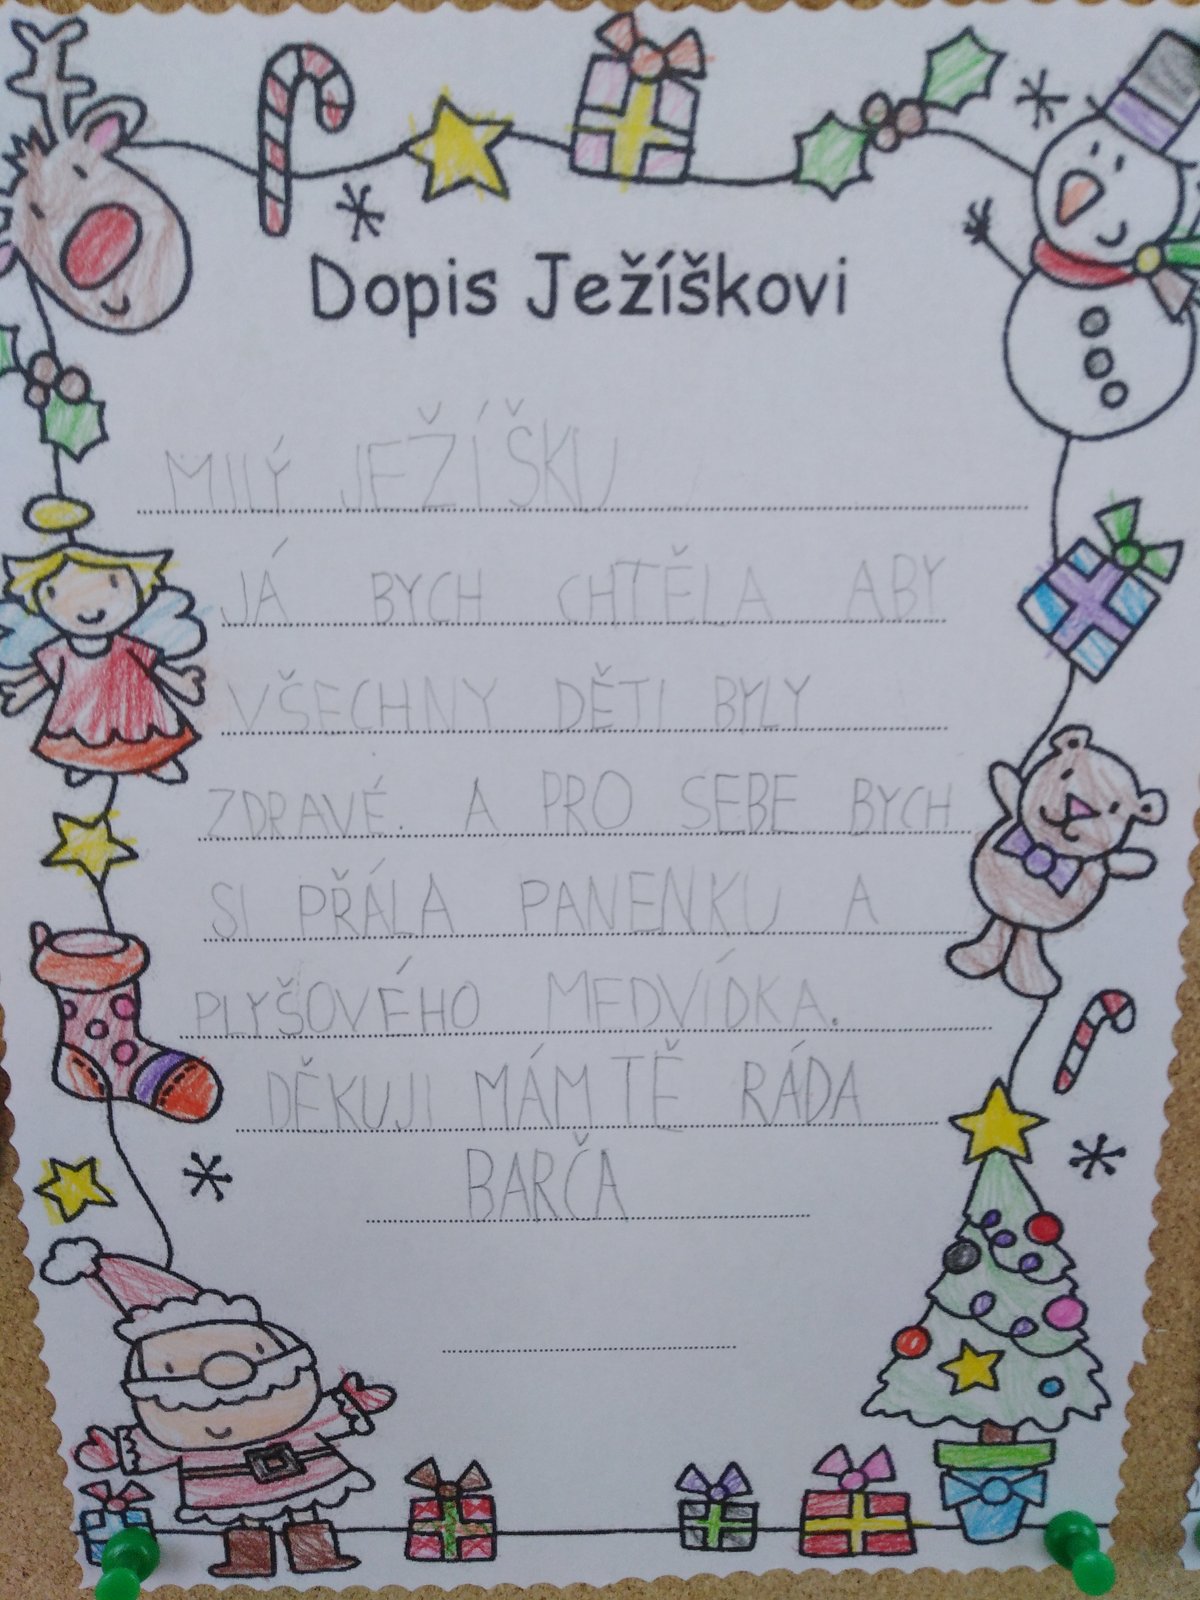 Dopis Ježíškovi
MILÝ JEŽÍŠKU
JÁ BYCH CHTĚLA ABY
VŠECHNY DĚTI BYLY
ZDRAVÉ. A PRO SEBE BYCH
SI PŘÁLA PANENKU A
PLYŠOVÉHO MEDVÍDKA.
DĚKUJI MÁM TĚ RÁDA
BARČA